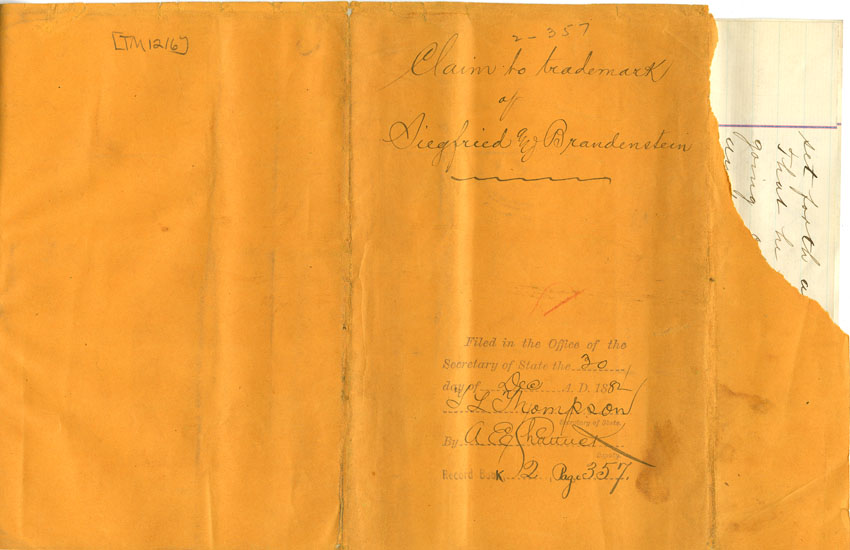 [TM1216]
2-357
Claim to trademark
of
Siegfried & Brandenstein
Filed in the Office of the
Secretary of State the 30
day of Dec A. D. 1882
Thompson
Secretary of State
By A E
Deputy
Record Book 2 Page 357
set forth a
That he
going